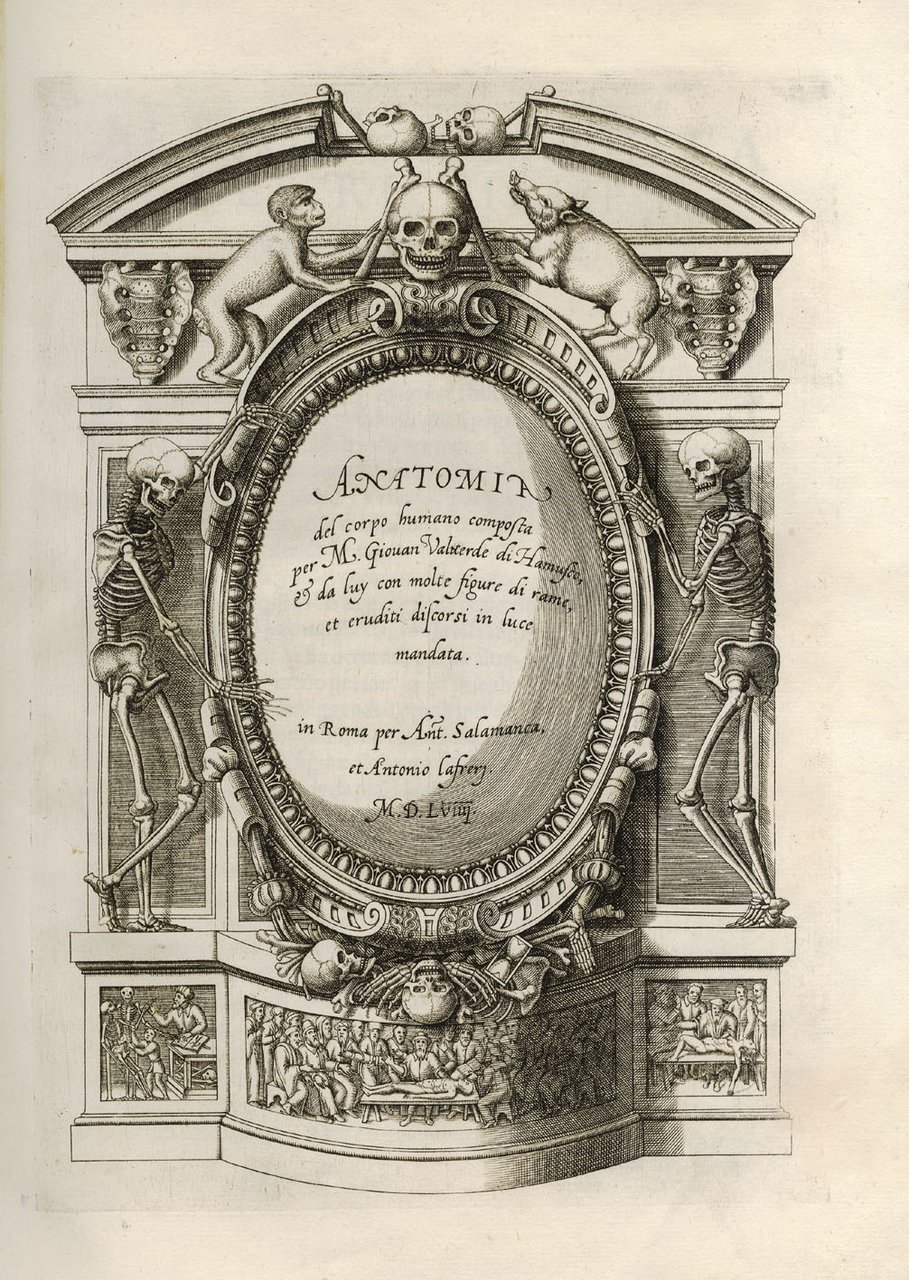 ANATOMIA
del corpo humano composta
per M. Giouan Valuerde di Hamusco,
& da luy con molte figure di rame,
et eruditi discorsi in luce
mandata.
in Roma per Ant. Salamanca,
et Antonio Lafrerj.
M.D.LVIIII.